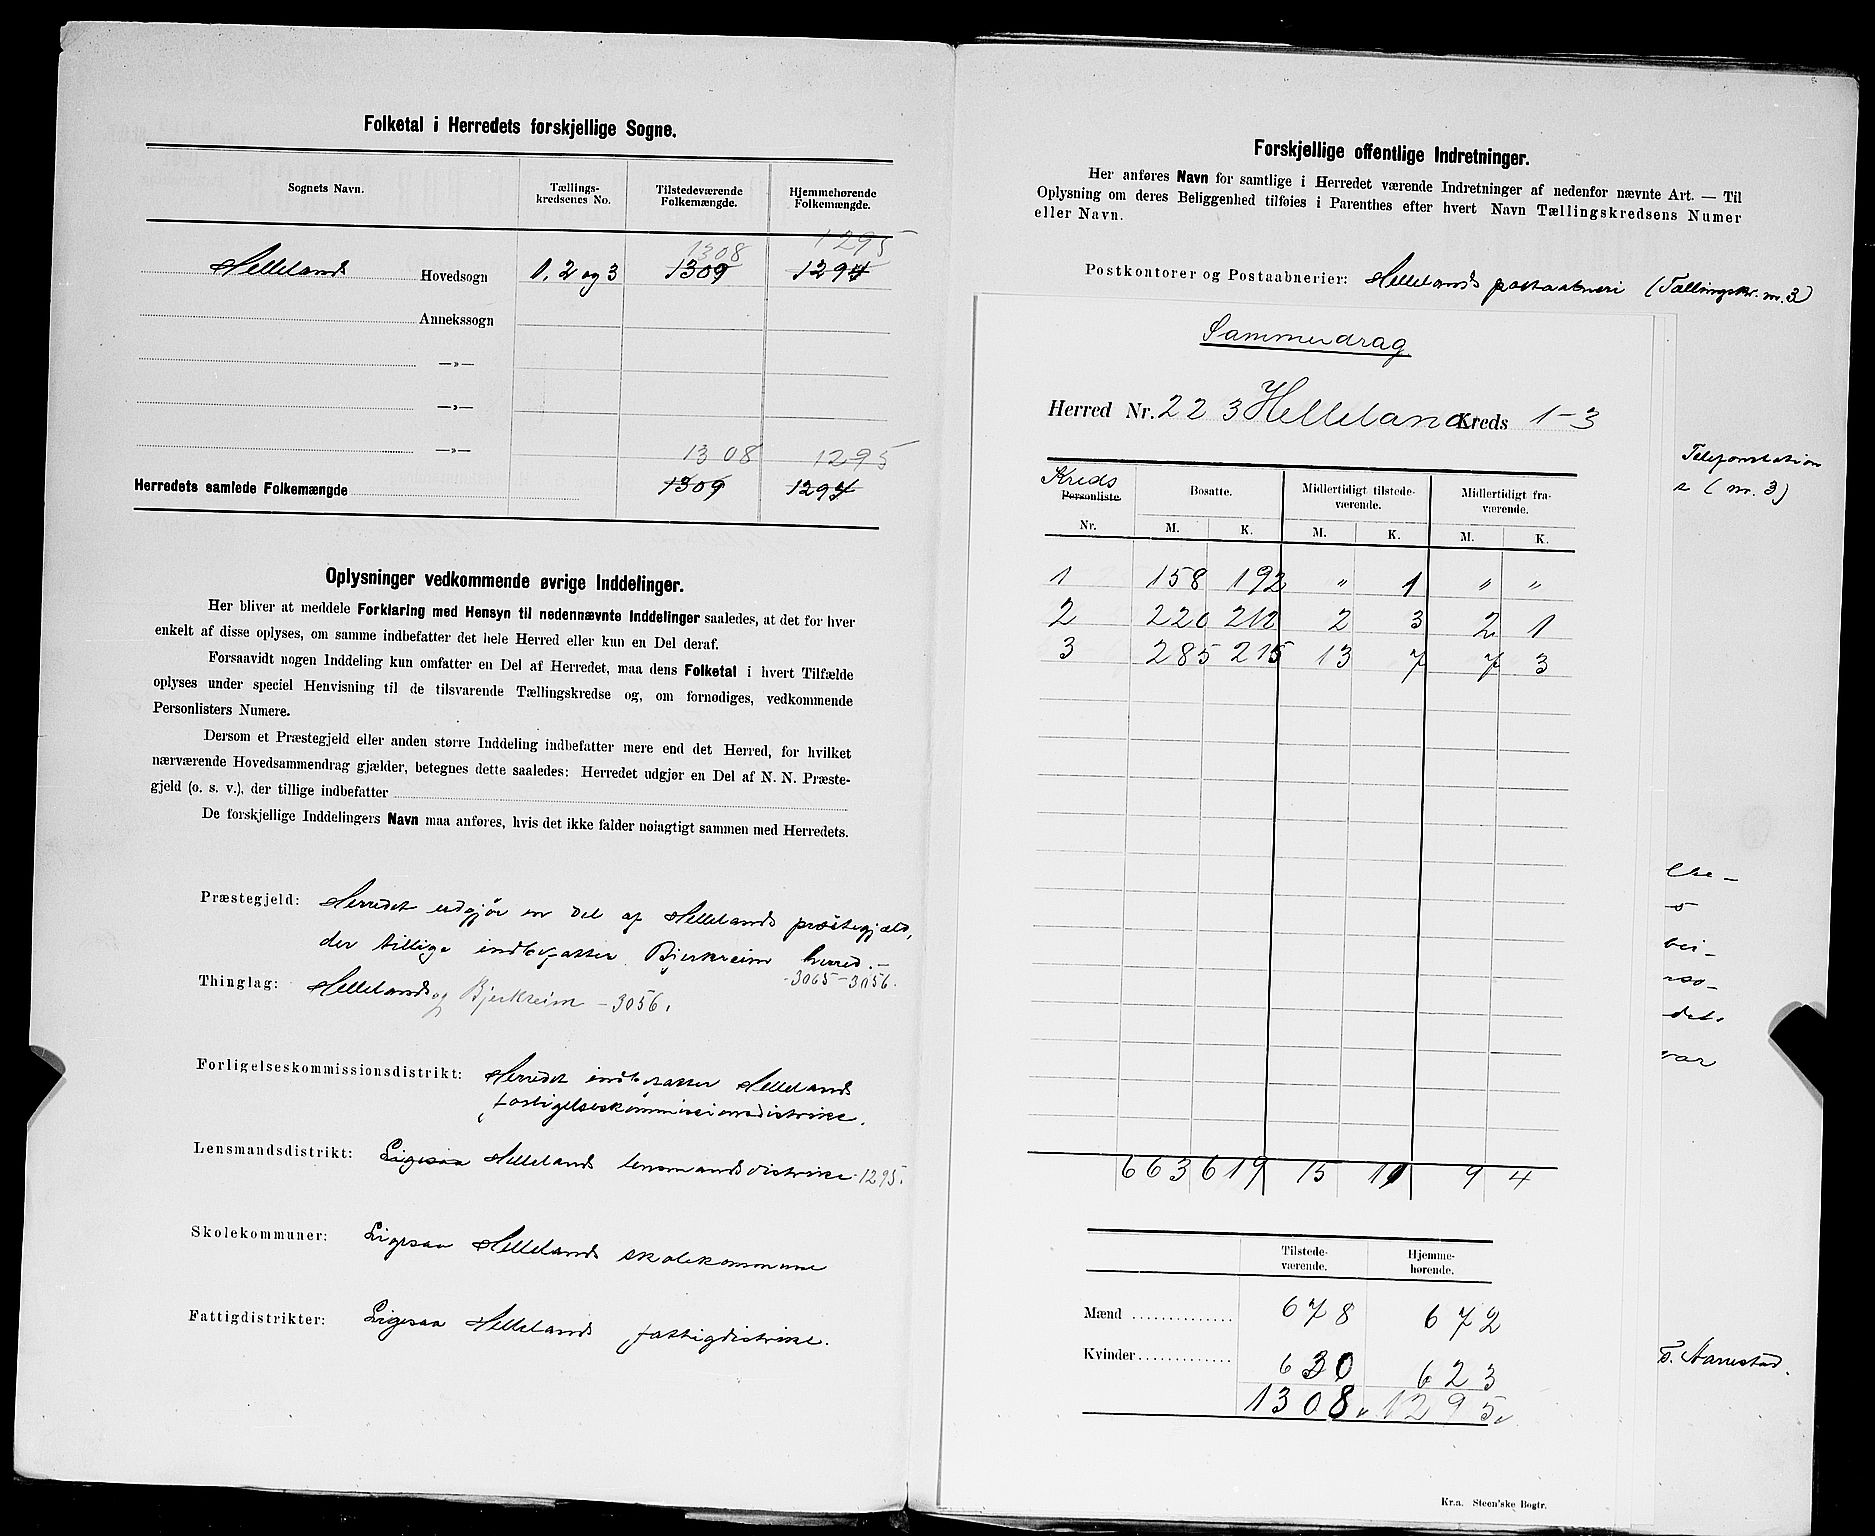 Folketal i Herredets forskjellige Sogne.
Sognets Navn. Tællings-kredsenes No. Tilstedeværende Folkemængde. Hjemmehørende Folkemængde.
1308 1295
Hellelands Hovedsogn 1, 2 og 3 1309 1294
Annekssogn
—»—
—»—
—»—
1308 1295
Herredets samlede Folkemængde 1309 1294
Oplysninger vedkommende øvrige Inddelinger.
Her bliver at meddele Forklaring med Hensyn til nedennævnte Inddelinger saaledes, at det for hver
enkelt af disse oplyses, om samme indbefatter det hele Herred eller kun en Del deraf.
Forsaavidt nogen Inddeling kun omfatter en Del af Herredet, maa dens Folketal i hvert Tilfælde
oplyses under speciel Henvisning til de tilsvarende Tællingskredse og, om fornødiges, vedkommende
Personlisters Numere.
Dersom et Præstegjeld eller anden større Inddeling indbefatter mere end det Herred, for hvilket
nærværende Hovedsammendrag gjælder, betegnes dette saaledes: Herredet udgjør en Del af N. N. Præste-
gjeld (o. s. v.), der tillige indbefatter
De forskjellige Inddelingers Navn maa anføres, hvis det ikke falder nøiagtigt sammen med Herredets.
Præstegjeld: Herredet udgjør en Del af Hellelands præstegjæld,
der tillige indbefatter Bjerkreim herred.—
-3065-3056.
Thinglag: Hellelands og Bjerkreim -3056.
Forligelseskommissionsdistrikt: Herredet indbefatter Hellelands
forligelseskommissionsdistrikt.
Lensmandsdistrikt: Ligesaa Hellelands lensmandsdistrikt 1295.
Skolekommuner: Ligesaa Hellelands skolekommune
Fattigdistrikter: Ligesaa Hellelands fattigdistrikt.
Forskjellige offentlige Indretninger.
Her anføres Navn for samtlige i Herredet værende Indretninger af nedenfor nævnte Art. — Til
Oplysning om deres Beliggenhed tilføies i Parenthes efter hvert Navn Tællingskredsens Numer
eller Navn.
Postkontorer og Postaabnerier: Hellelands postaabneri (Tællingskr. nr. 3)
Sammendrag
Herred Nr. 223 Helleland Kreds 1-3
Kreds
Personliste. Bosatte. Midlertidigt tilstede-værende. Midlertidigt fra-værende.
Nr. M. K. M. K. M. K.
1 158 192 „ 1 „ „
2 220 212 2 3 2 1
3 285 215 13 7 7 3
663 619 15 11 9 4
Tilstede-værende. Hjemme-hørende.
Mænd 678 672
Kvinder 630 623
1308 1295
Kr.a. Steen'ske Bogtr.
Telefonstation
(nr. 3)
bei-
rso-
det.
var